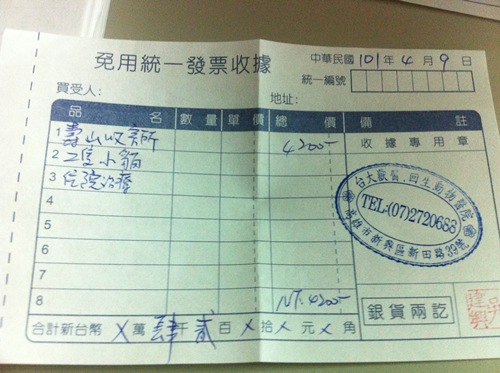 免用統一發票收據
中華民國 101 年 4 月 9 日
統一編號
買受人：
地址：
品 名 數量 單價 總 價 備 註
1 壽山收容所 4200- 收據專用章
2 二隻小貓
3 住院治療
台大獸醫.回生動物醫院
TEL:(07)2720688
高雄市新興區新田路39號
4
5
6
7
8 NT: 4200-
銀貨兩訖
合計新台幣 X 萬 肆 千 貳 百 X 拾 X 元 X 角